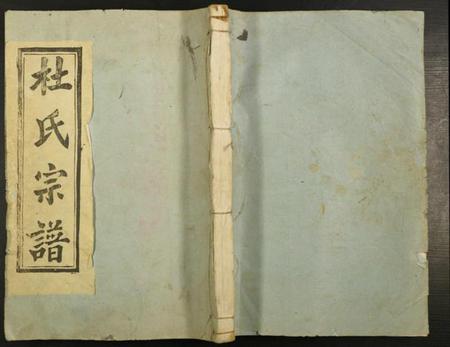 杜氏宗譜